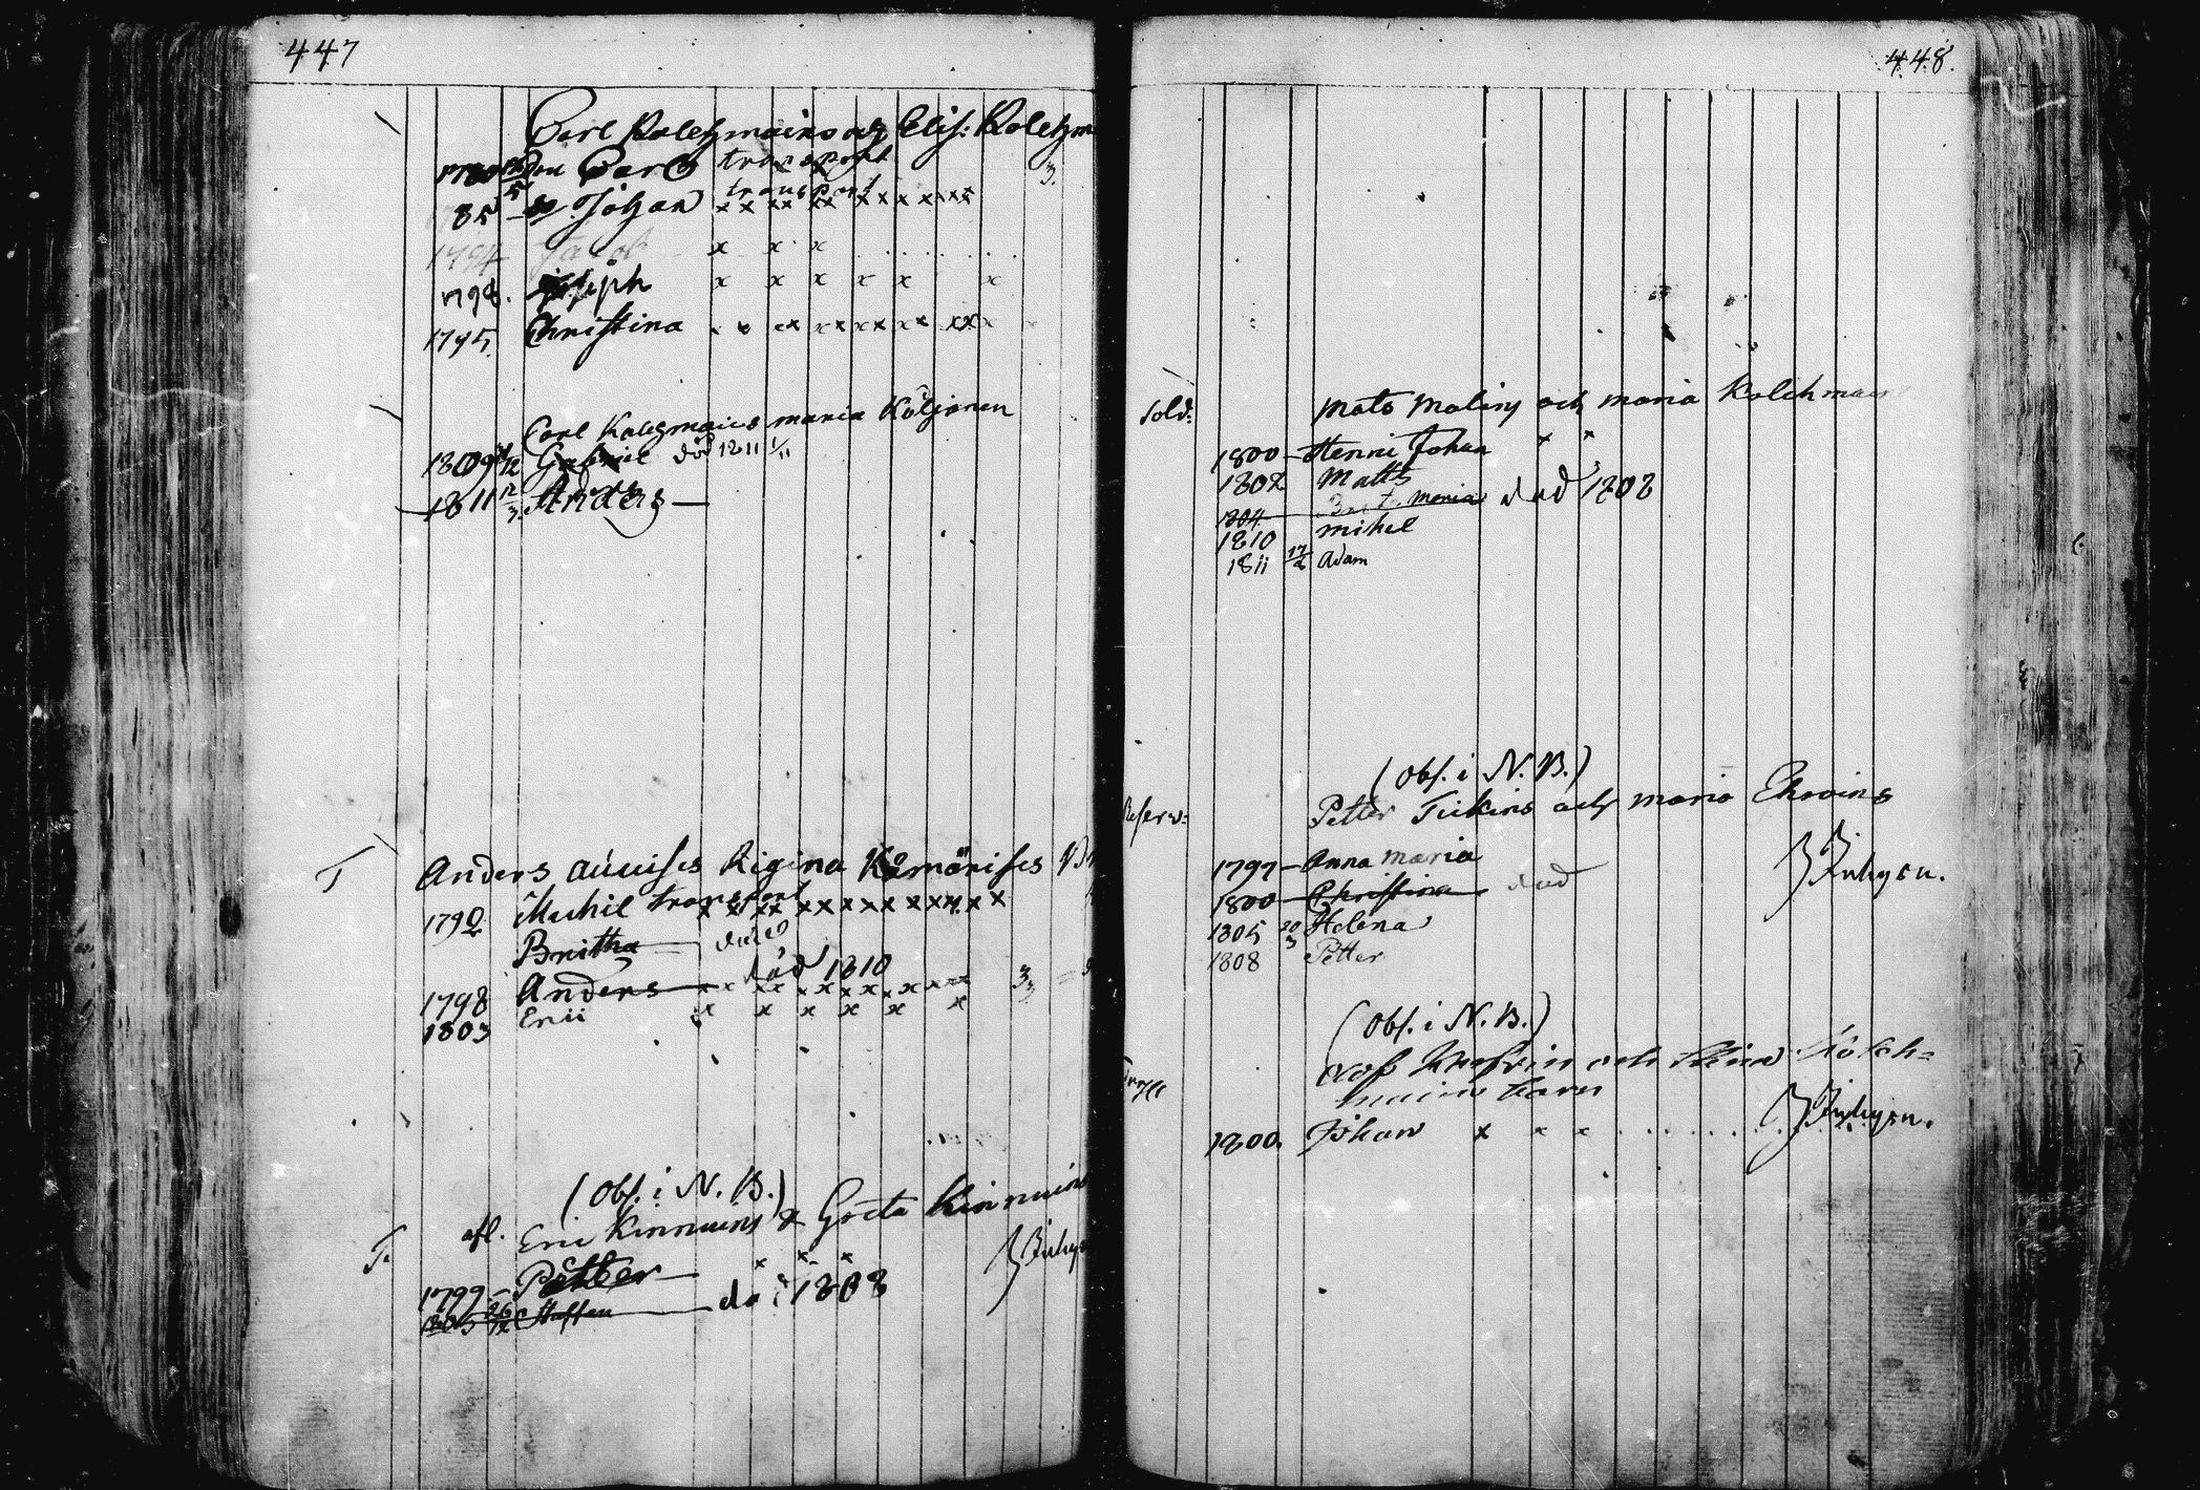 447
Carl Kolehmains och Elis: Kolehm
den Carl transport 3.
85 Johan transport x x x x x x x x x x x x
1794 Jacob x x x
1798. Joseph x x x x x x
1795. Christina x x x x x x x x x x x x x
Carl Kolehmains maria Köljonen
1809 Gabriel död 1811 1/11
1811 12/3. Anders
T Anders auvises Rigina Kämärises
1790 Michil transport x x x x x x x x x x x x x
Britha död
död 1810
1798 Anders x x x x x x x x x x x x 3
1803 Eric x x x x x x
(Obs. i N. B.)
T. afl. Eric Kinnuins & Greta Kinnuins
1799 - Petter x x x
1805 26/12 Staffan död 1808
448.
Sold: mats maliny och maria Kolehmain
1800 - Henric Johan x x
1802 Matts
1804 Brit. maria död 1808
1810 michel
1811 17/2 Adam
(Obs. i N. B.)
Reserv: Petter Tiikins och maria Ehroins
1797 - Anna maria
1800 - Christina död
1805 20/3 Helena
1808 Petter
(Obs. i N. B.)
och Koleh=
mains barn
1800. Johan x x x